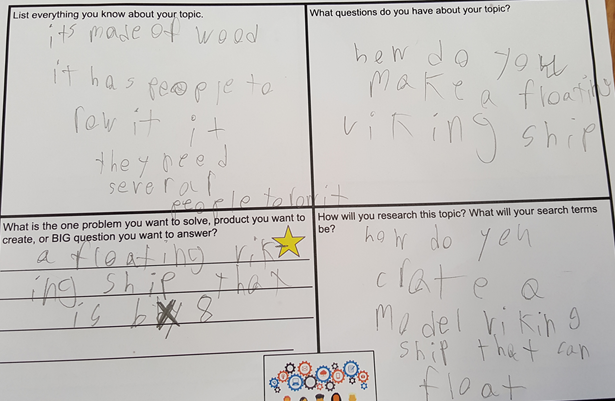 List everything you know about your topic.
its made of wood
it has people to
row it it
they need
several
people to row it
What questions do you have about your topic?
how do you
make a floating
viking ship
What is the one problem you want to solve, product you want to
create, or BIG question you want to answer?
a floating vik
ing ship that
is by 8
How will you research this topic? What will your search terms
be?
how do yeu
crate a
model viking
ship that can
float